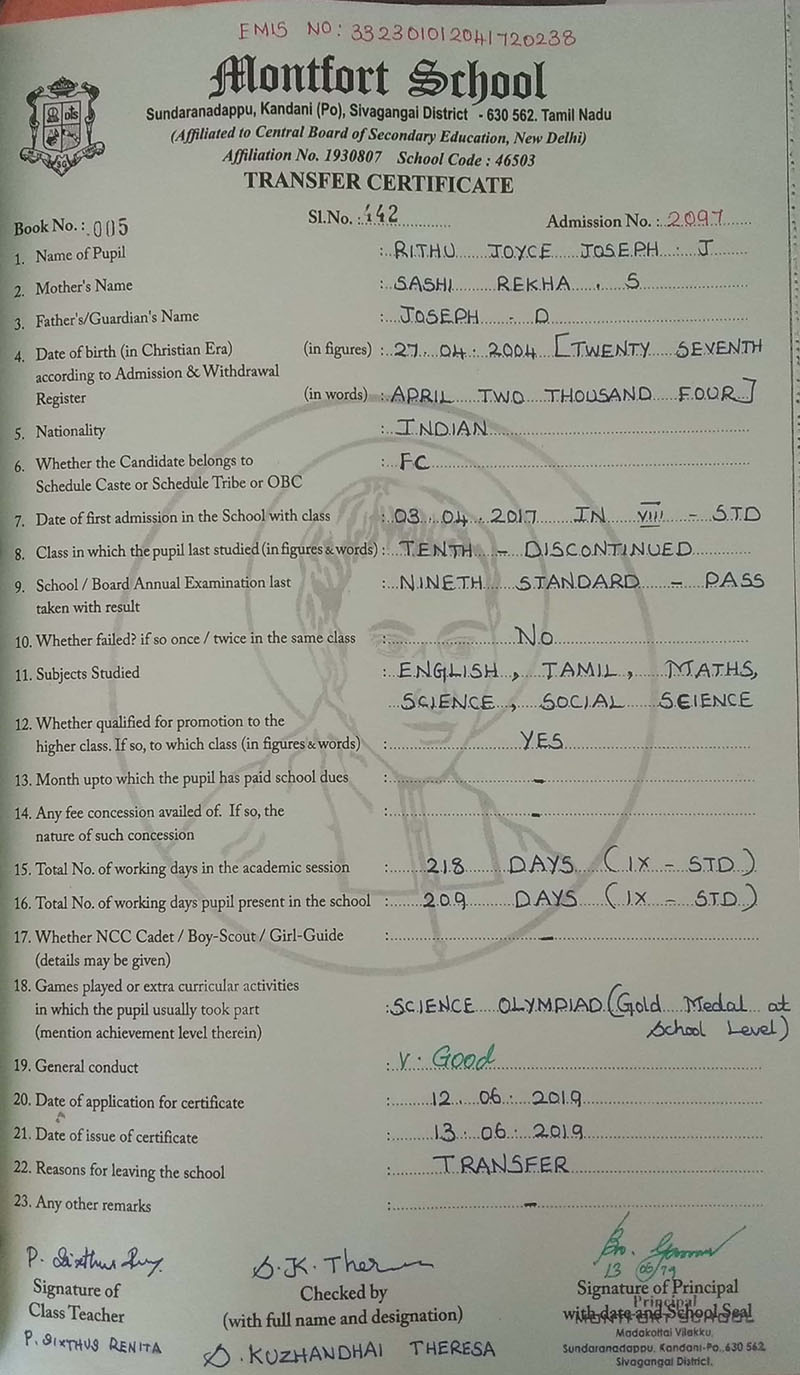 EMIS NO: 332301012041720238
Montfort School
Sundaranadappu, Kandani (Po), Sivagangai District - 630 562. Tamil Nadu
(Affiliated to Central Board of Secondary Education, New Delhi)
Affiliation No. 1930807 School Code : 46503
TRANSFER CERTIFICATE
Book No. : 005 Sl.No. : 142 Admission No. : 2097
1. Name of Pupil : RITHU JOYCE JOSEPH . J
2. Mother's Name : SASHI REKHA . S
3. Father's/Guardian's Name : JOSEPH . D
4. Date of birth (in Christian Era) (in figures) : 27. 04. 2004 [TWENTY SEVENTH
according to Admission & Withdrawal
Register (in words) : APRIL TWO THOUSAND FOUR]
5. Nationality : INDIAN
6. Whether the Candidate belongs to : FC
Schedule Caste or Schedule Tribe or OBC
7. Date of first admission in the School with class : 03. 04. 2017 IN VIII - STD
8. Class in which the pupil last studied (in figures & words) : TENTH - DISCONTINUED
9. School / Board Annual Examination last : NINETH STANDARD - PASS
taken with result
10. Whether failed? if so once / twice in the same class : No
11. Subjects Studied : ENGLISH, TAMIL, MATHS,
SCIENCE, SOCIAL SCIENCE
12. Whether qualified for promotion to the
higher class. If so, to which class (in figures & words) : YES
13. Month upto which the pupil has paid school dues : -
14. Any fee concession availed of. If so, the : -
nature of such concession
15. Total No. of working days in the academic session : 218 DAYS (IX - STD)
16. Total No. of working days pupil present in the school : 209 DAYS (IX - STD)
17. Whether NCC Cadet / Boy-Scout / Girl-Guide : -
(details may be given)
18. Games played or extra curricular activities
in which the pupil usually took part : SCIENCE OLYMPIAD (Gold Medal at
(mention achievement level therein) School Level)
19. General conduct : V. Good
20. Date of application for certificate : 12. 06. 2019
21. Date of issue of certificate : 13. 06. 2019
22. Reasons for leaving the school : TRANSFER
23. Any other remarks : -
P. Sixthus S.K. Ther Bro.
13 06/19
Signature of Checked by Signature of Principal
Class Teacher (with full name and designation) with date and School Seal
Principal
MONTFORT SCHOOL
P. SIXTHUS RENITA S. KUZHANDHAI THERESA
Madakottai Vilakku,
Sundaranadappu, Kandani-Po., 630 562.
Sivagangai District.